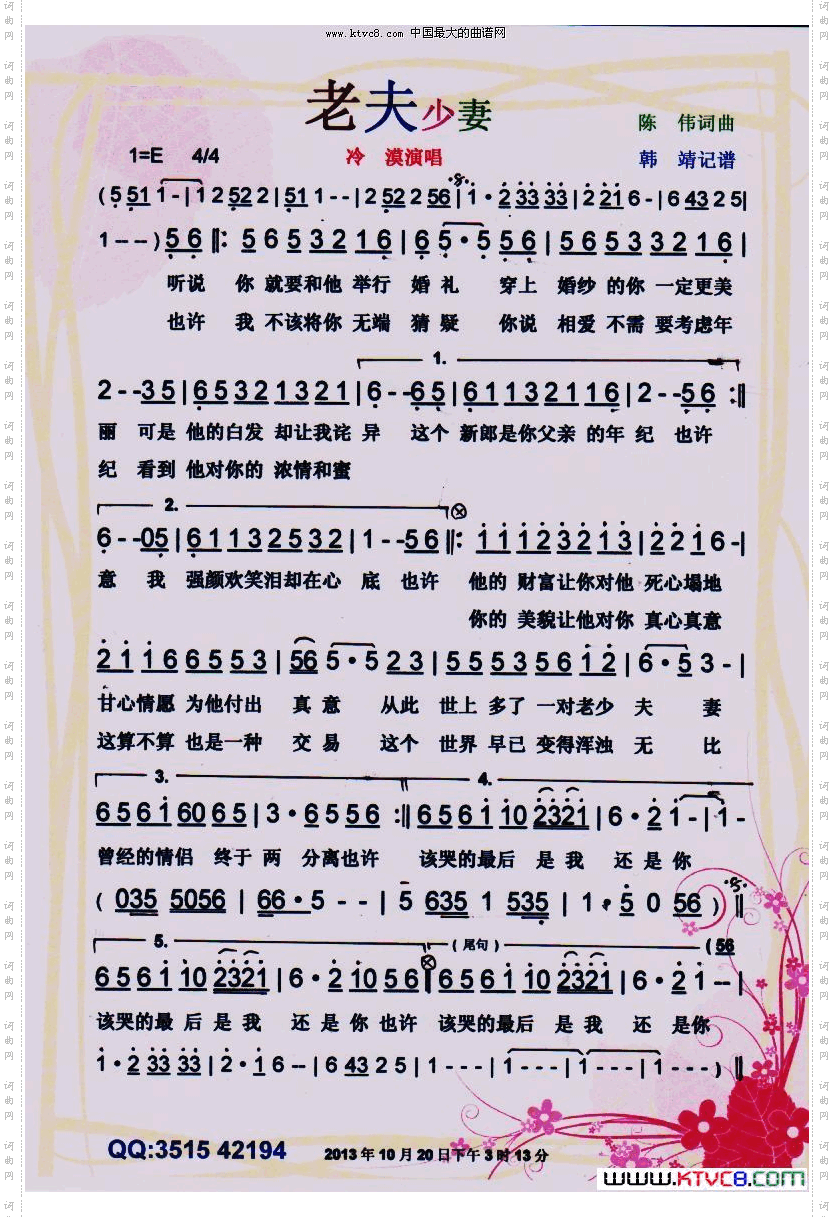 www.ktvc8.com 中国最大的曲谱网
老夫少妻
陈 伟词曲
1=E 4/4
冷 漠演唱
韩 靖记谱
(5 51 1 - | 1 2 52 2 | 51 1 - - | 2 52 2 56 | 1 · 2 33 33 | 2 21 6 - | 6 43 2 5 |
1 - - -) 56 ‖: 5 6 5 3 2 1 6 | 6 5 · 5 5 6 | 5 6 5 3 3 2 1 6 |
听说 你 就要和他 举行 婚 礼 穿上 婚纱 的你 一定更美
也许 我 不该将你 无端 猜 疑 你说 相爱 不需 要考虑年
1.
2 - - 3 5 | 6 5 3 2 1 3 2 1 | 6 - - 6 5 | 6 1 1 3 2 1 1 6 | 2 - - 5 6 :‖
丽 可是 他的白发 却让我诧 异 这个 新郎是你父亲 的年 纪 也许
纪 看到 他对你的 浓情和蜜
2.
6 - - 0 5 | 6 1 1 3 2 5 3 2 | 1 - - 5 6 ‖: 1 1 1 2 3 2 1 3 | 2 2 1 6 - |
意 我 强颜欢笑泪却在心 底 也许 他的 财富让你对他 死心塌地
你的 美貌让他对你 真心真意
2 1 1 6 6 5 5 3 | 56 5 · 5 2 3 | 5 5 5 3 5 6 1 2 | 6 · 5 3 - |
甘心情愿 为他付出 真 意 从此 世上 多了 一对老少 夫 妻
这算不算 也是一种 交 易 这个 世界 早已 变得浑浊 无 比
3. 4.
6 5 6 1 60 6 5 | 3 · 6 5 5 6 :‖ 6 5 6 1 10 2321 | 6 · 2 1 - | 1 -
曾经的情侣 终于 两 分离也许 该哭的最后 是 我 还 是 你
( 035 5056 | 66 · 5 - - | 5 635 1 535 | 1 · 5 0 56 ) ‖
5. (尾句) (56
6 5 6 1 10 2321 | 6 · 2 10 5 6 ‖ 6 5 6 1 10 2321 | 6 · 2 1 - - |
该哭的最 后 是 我 还 是 你 也许 该哭的最后 是 我 还 是你
1 · 2 33 33 | 2 · 1 6 - - | 6 43 2 5 | 1 - - - | 1 - - - | 1 - - - ) ‖
QQ:3515 42194
2013年10月20日下午3时13分
www.KTVC8.com